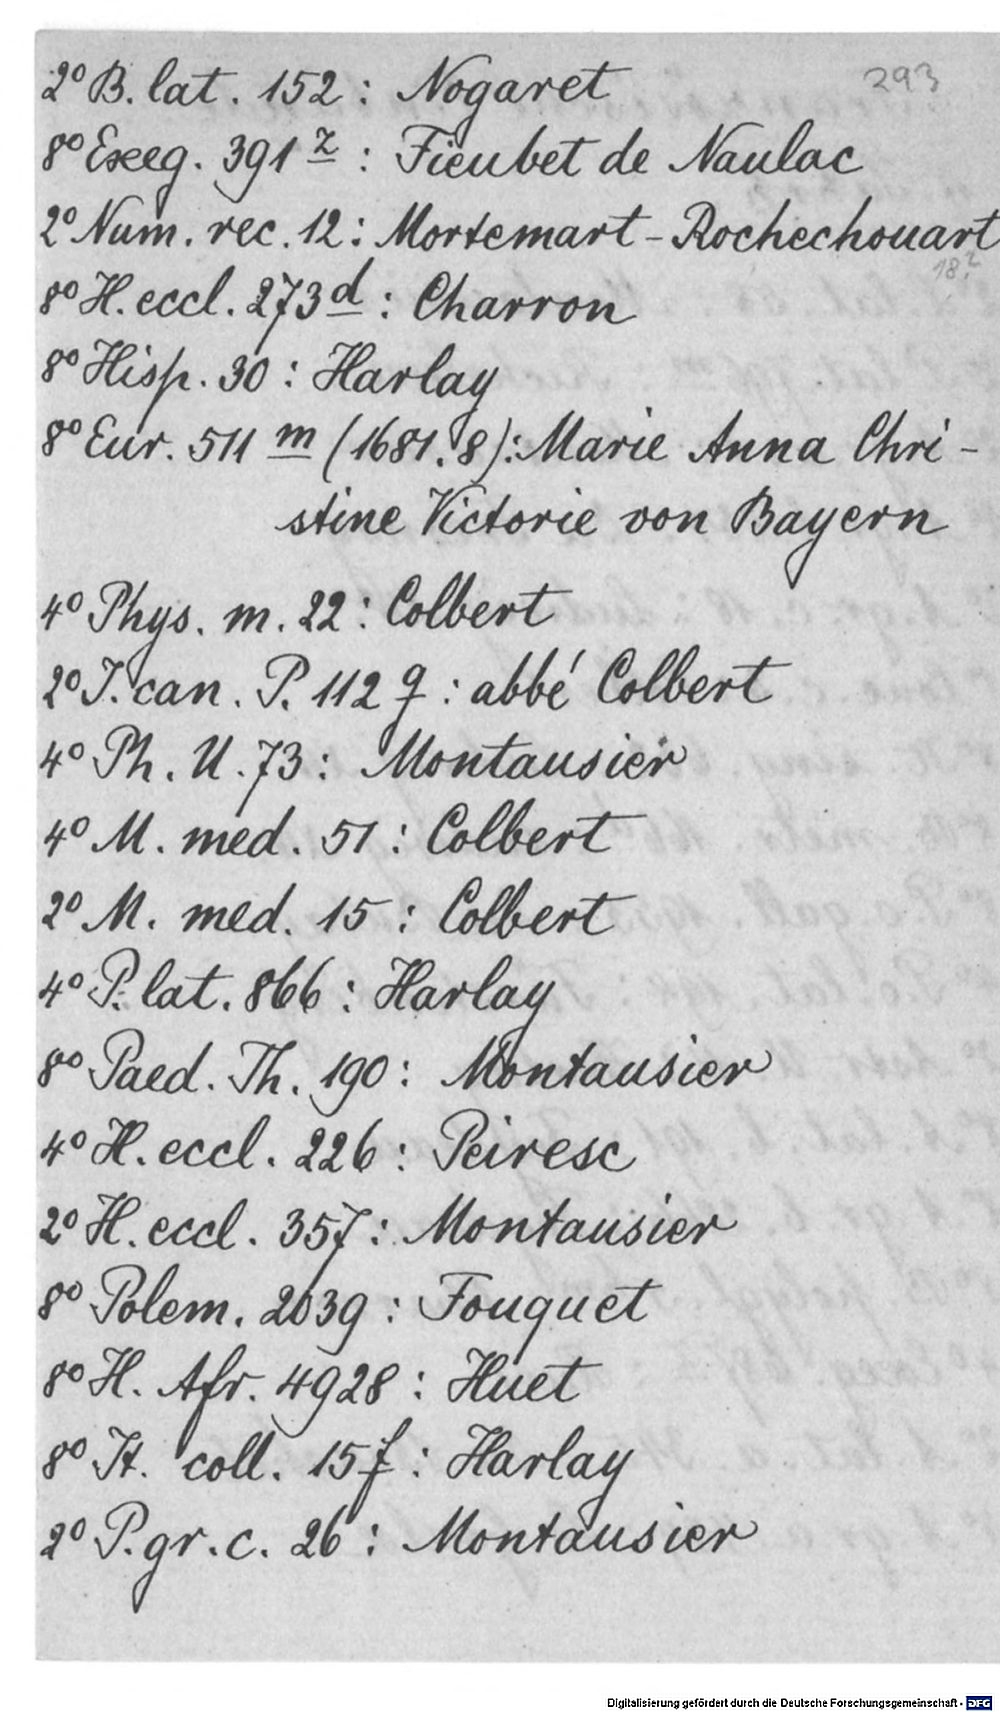 2° B. lat. 152 : Nogaret
293
8° Exeg. 391 z : Fieubet de Naulac
2° Num. rec. 12 : Mortemart - Rochechouart
18.2
8° H. eccl. 273 d : Charron
8° Hisp. 30 : Harlay
8° Eur. 511 m (1681.8): Marie Anna Chri-
stine Victorie von Bayern
4° Phys. m. 22 : Colbert
2° J. can. P. 112 q : abbé Colbert
4° Ph. U. 73 : Montausier
4° M. med. 51 : Colbert
2° M. med. 15 : Colbert
4° P. lat. 866 : Harlay
8° Paed. Th. 190 : Montausier
4° H. eccl. 226 : Peiresc
2° H. eccl. 357 : Montausier
8° Polem. 2039 : Fouquet
8° H. Afr. 4928 : Huet
8° It. coll. 15 f : Harlay
2° P. gr. c. 26 : Montausier
Digitalisierung gefördert durch die Deutsche Forschungsgemeinschaft - DFG